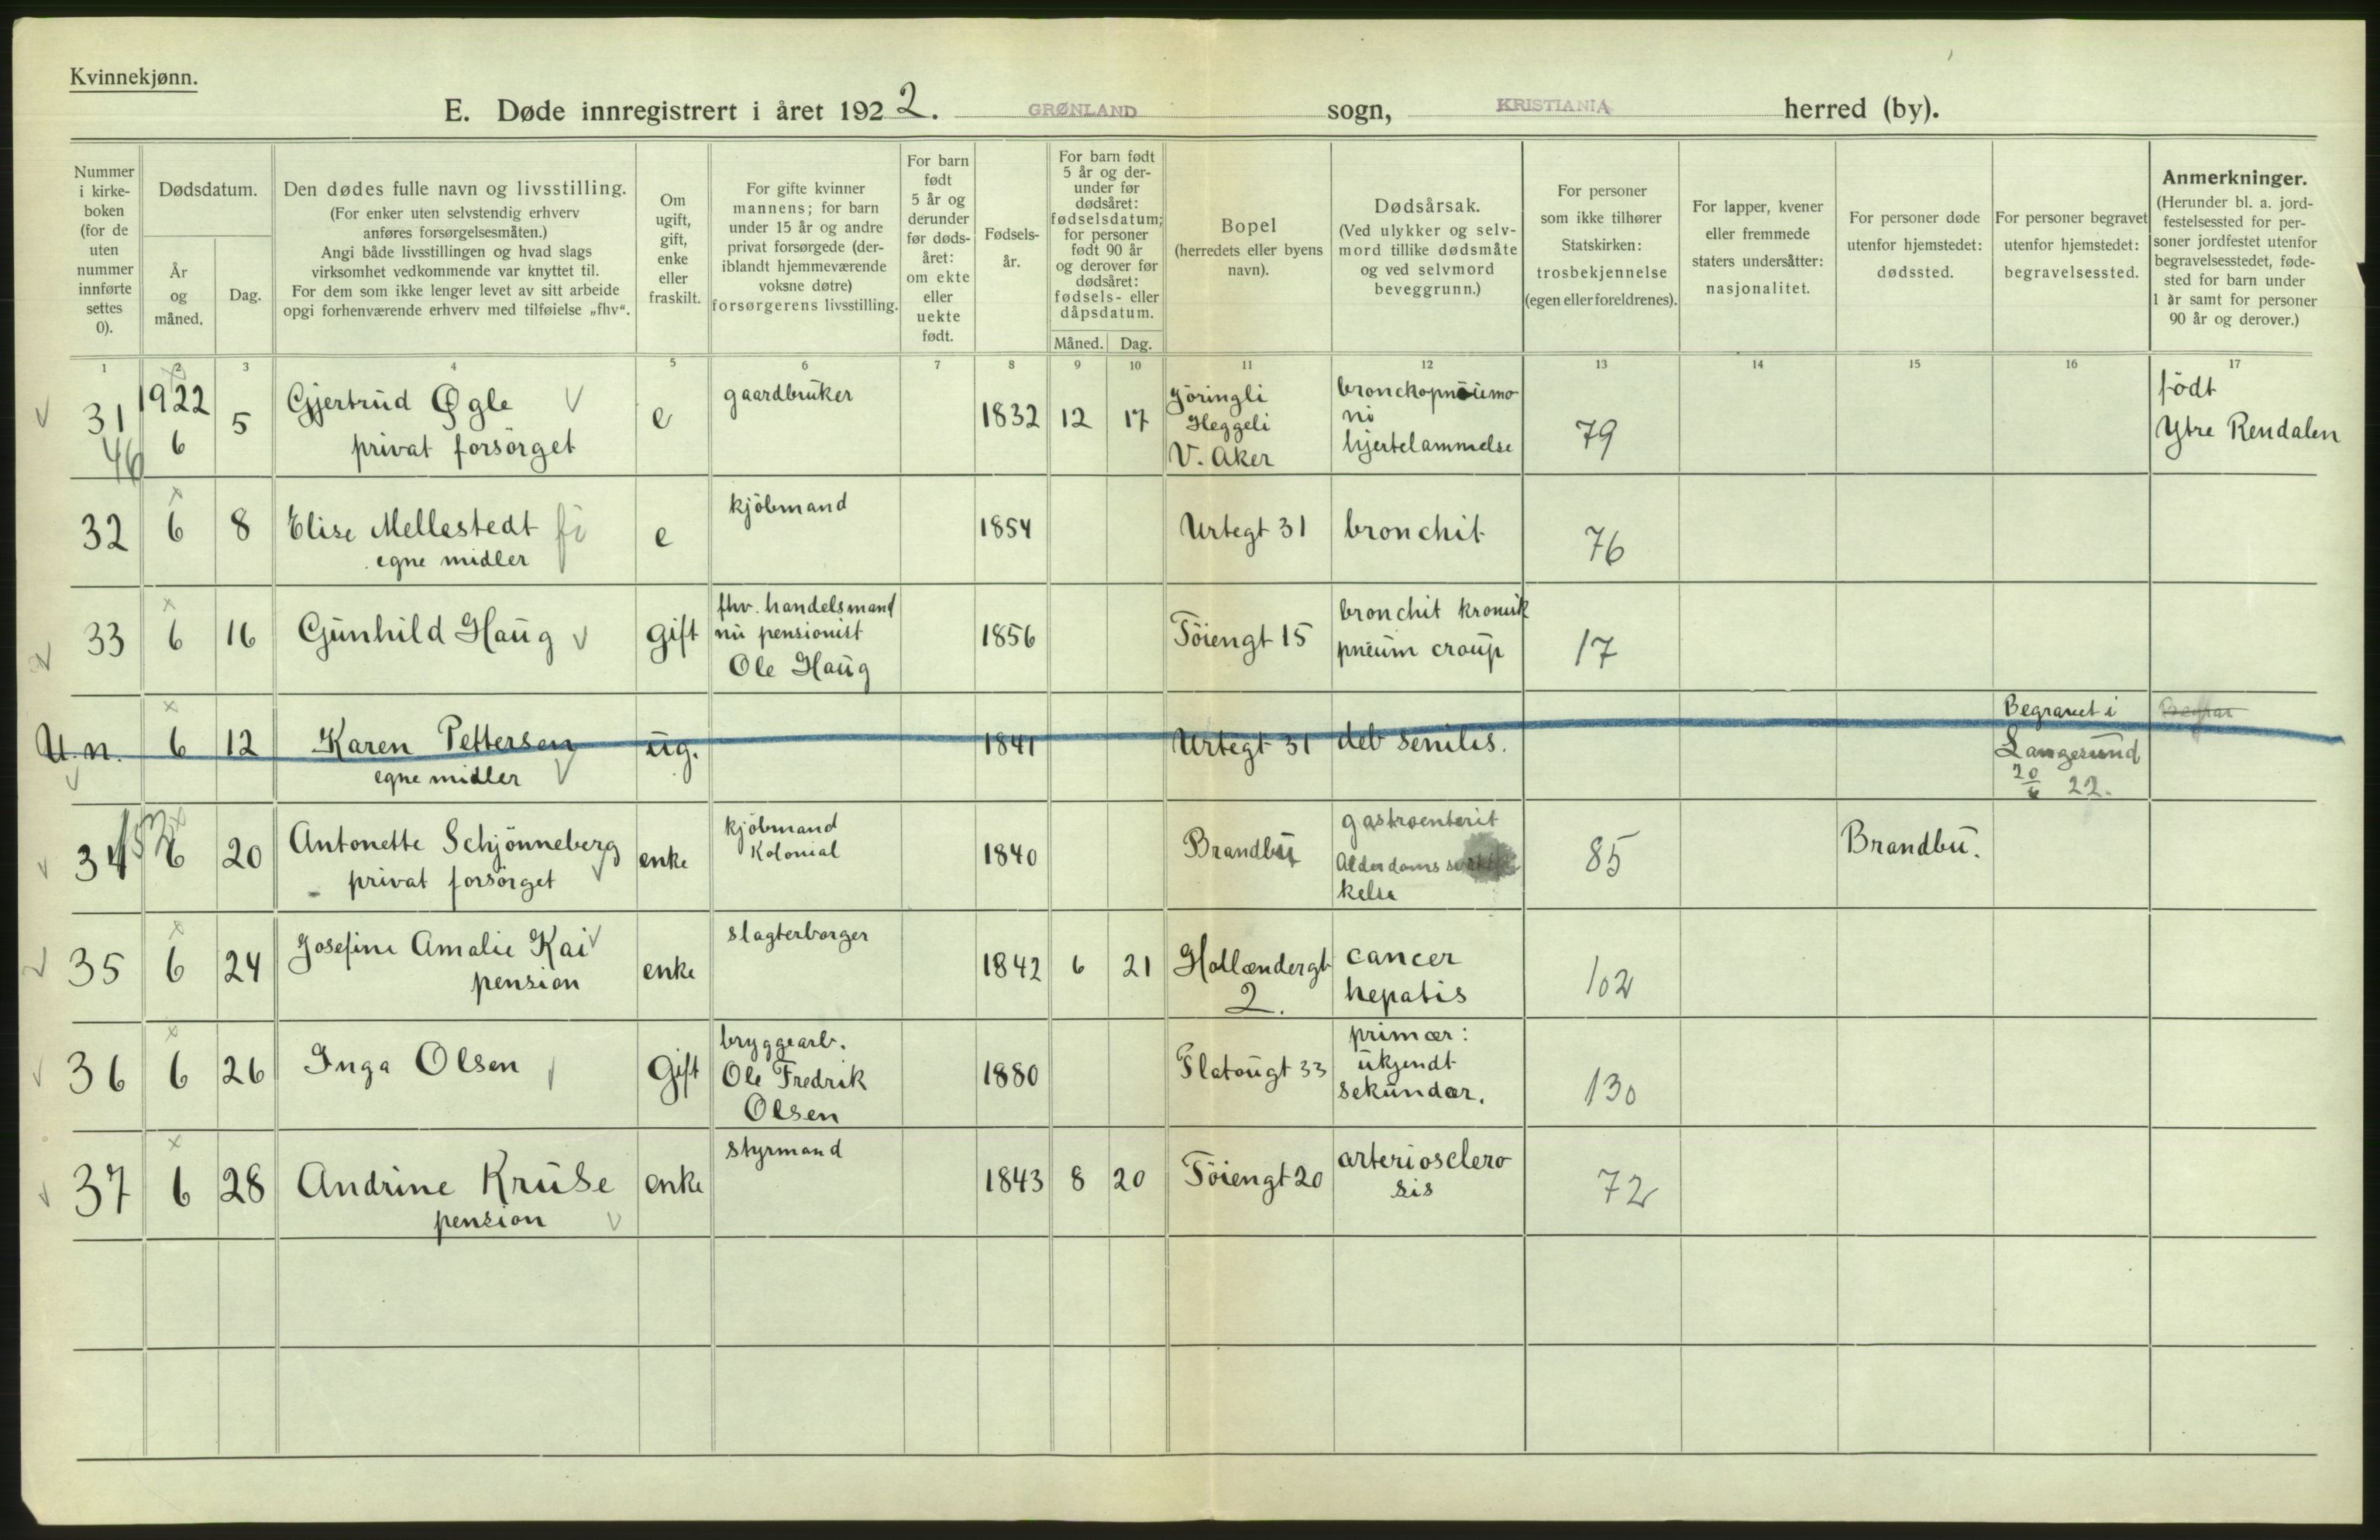 Kvinnekjønn.
E. Døde innregistrert i året 1922. GRØNLAND sogn, KRISTIANIA herred (by).
Nummer i kirke- boken (for de uten nummer innførte settes 0).
Dødsdatum.
År og måned.
Dag.
Den dødes fulle navn og livsstilling.
(For enker uten selvstendig erhverv
anføres forsørgelsesmåten.)
Angi både livsstillingen og hvad slags
virksomhet vedkommende var knyttet til.
For dem som ikke lenger levet av sitt arbeide
opgi forhenværende erhverv med tilføielse „fhv“.
Om ugift, gift, enke eller fraskilt.
For gifte kvinner
mannens; for barn
under 15 år og andre
privat forsørgede (der-
iblandt hjemmeværende
voksne døtre)
forsørgerens livsstilling.
For barn født 5 år og derunder før døds- året: om ekte eller uekte født.
Fødsels- år.
For barn født
5 år og der-
under før
dødsåret:
fødselsdatum;
for personer
født 90 år
og derover før
dødsåret:
fødsels- eller
dåpsdatum.
Måned. Dag.
Bopel
(herredets eller byens
navn).
Dødsårsak.
(Ved ulykker og selv-
mord tillike dødsmåte
og ved selvmord
beveggrunn.)
For personer
som ikke tilhører
Statskirken:
trosbekjennelse
(egen eller foreldrenes).
For lapper, kvener
eller fremmede
staters undersåtter:
nasjonalitet.
For personer døde
utenfor hjemstedet:
dødssted.
For personer begravet
utenfor hjemstedet:
begravelsessted.
Anmerkninger.
(Herunder bl. a. jord-
festelsessted for per-
soner jordfestet utenfor
begravelsesstedet, føde-
sted for barn under
1 år samt for personer
90 år og derover.)
1 2 3 4 5 6 7 8 9 10 11 12 13 14 15 16 17
31
46
1922
6
5
Gjertrud Øgle
privat forsörget
e
gaardbruker
1832 12 17
Heggeli
V. Aker
ni
hjertelammelse
79
født
Ytre Rendalen
32 6 8
Elise Mellestedt
egne midler
e
kjöbmand
1854
Urtegt 31
bronchit
76
33 6 16
Gunhild Haug
gift
fhv. handelsmand
nu pensionist
Ole Haug
1856
Töiengt 15
bronchit kronisk
pneum croup
17
U.n. 6 12
Karen Pettersen
egne midler
ug.
1841
Urtegt 31
deb senilis.
Begravet i
Langesund
20/6 22.
34 6 20
Antonette Schjönneberg
privat forsörget
enke
kjöbmand
Kolonial
1840
Brandbu
gastroenterit
Alderdoms
kelse
85
Brandbu.
35 6 24
Josefine Amalie Kai
pension
enke
slagterborger
1842 6 21
Hollændergt
2.
cancer
hepatis
102
36 6 26
Inga Olsen
Gift
bryggearb.
Ole Fredrik
Olsen
1880
Platougt 33
primær:
ukjendt
sekundær.
130
37 6 28
Andrine Kruse
pension
enke
styrmand
1843 8 20
Töiengt 20
arteriosclero
sis
72